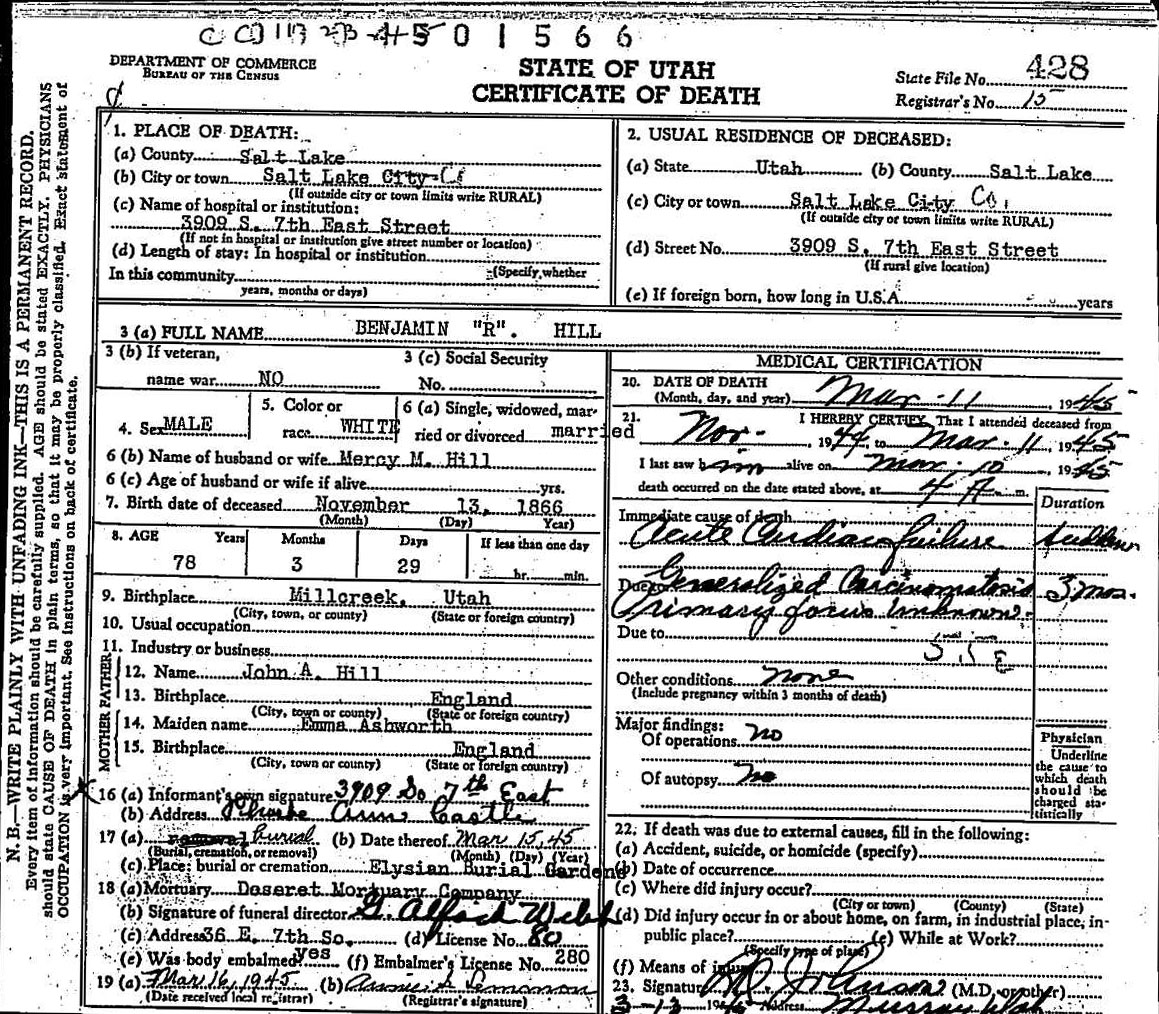 4 5 0 1 5 6 6
DEPARTMENT OF COMMERCE
BUREAU OF THE CENSUS
STATE OF UTAH
CERTIFICATE OF DEATH
State File No. 428
Registrar's No. 15
N. B.—WRITE PLAINLY WITH UNFADING INK—THIS IS A PERMANENT RECORD.
Every item of information should be carefully supplied. AGE should be stated EXACTLY. PHYSICIANS
should state CAUSE OF DEATH in plain terms, so that it may be properly classified. Exact statement of
OCCUPATION is very important. See instructions on back of certificate.
1. PLACE OF DEATH:
(a) County Salt Lake
(b) City or town Salt Lake City Co
(If outside city or town limits write RURAL)
(c) Name of hospital or institution:
3909 S. 7th East Street
(If not in hospital or institution give street number or location)
(d) Length of stay: In hospital or institution
(Specify whether
In this community
years, months or days)
2. USUAL RESIDENCE OF DECEASED:
(a) State Utah (b) County Salt Lake
(c) City or town Salt Lake City Co.
(If outside city or town limits write RURAL)
(d) Street No. 3909 S. 7th East Street
(If rural give location)
(e) If foreign born, how long in U.S.A. years
3 (a) FULL NAME BENJAMIN "R". HILL
3 (b) If veteran,
name war NO
3 (c) Social Security
No.
4. Sex MALE
5. Color or
race WHITE
6 (a) Single, widowed, mar-
ried or divorced married
6 (b) Name of husband or wife Mercy M. Hill
6 (c) Age of husband or wife if alive yrs.
7. Birth date of deceased November 13, 1866
(Month) (Day) Year)
8. AGE Years Months Days If less than one day
78 3 29 hr. min.
9. Birthplace Millcreek, Utah
(City, town, or county) (State or foreign country)
10. Usual occupation
11. Industry or business
FATHER
12. Name John A. Hill
13. Birthplace England
(City, town or county) (State or foreign country)
MOTHER
14. Maiden name Emma Ashworth
15. Birthplace England
(City, town or county) (State or foreign country)
16 (a) Informant's own signature 3909 So 7th East
(b) Address Phoebe Ann Castle
17 (a) removal burial (b) Date thereof Mar 15, 45
(Burial, cremation, or removal) (Month) (Day) (Year)
(c) Place: burial or cremation Elysian Burial Gardens
18 (a) Mortuary Deseret Mortuary Company
(b) Signature of funeral director
(c) Address 36 E. 7th So. (d) License No. 80
(e) Was body embalmed? yes (f) Embalmer's License No. 280
19 (a) Mar 16, 1945 (b)
(Date received local registrar) (Registrar's signature)
MEDICAL CERTIFICATION
20. DATE OF DEATH
(Month, day, and year) Mar - 11, 1945
21. I HEREBY CERTIFY, That I attended deceased from
Nov. 1944, to Mar. 11 1945
I last saw him alive on Mar. 10, 1945
death occurred on the date stated above, at 4 A m.
Duration
Immediate cause of death
Acute Cardiac failure sudden
Due to Generalized Carcinomatosis 3 mos.
Primary focus unknown.
Due to
55 E
Other conditions none
(Include pregnancy within 3 months of death)
Major findings:
Of operations no
Of autopsy no
Physician
Underline
the cause to
which death
should be
charged sta-
tistically
22. If death was due to external causes, fill in the following:
(a) Accident, suicide, or homicide (specify)
(b) Date of occurrence
(c) Where did injury occur?
(City or town) (County) (State)
(d) Did injury occur in or about home, on farm, in industrial place, in-
public place? (e) While at Work?
(Specify type of place)
(f) Means of injury
23. Signature (M.D. or other)
3-13 1945 Address Murray Utah